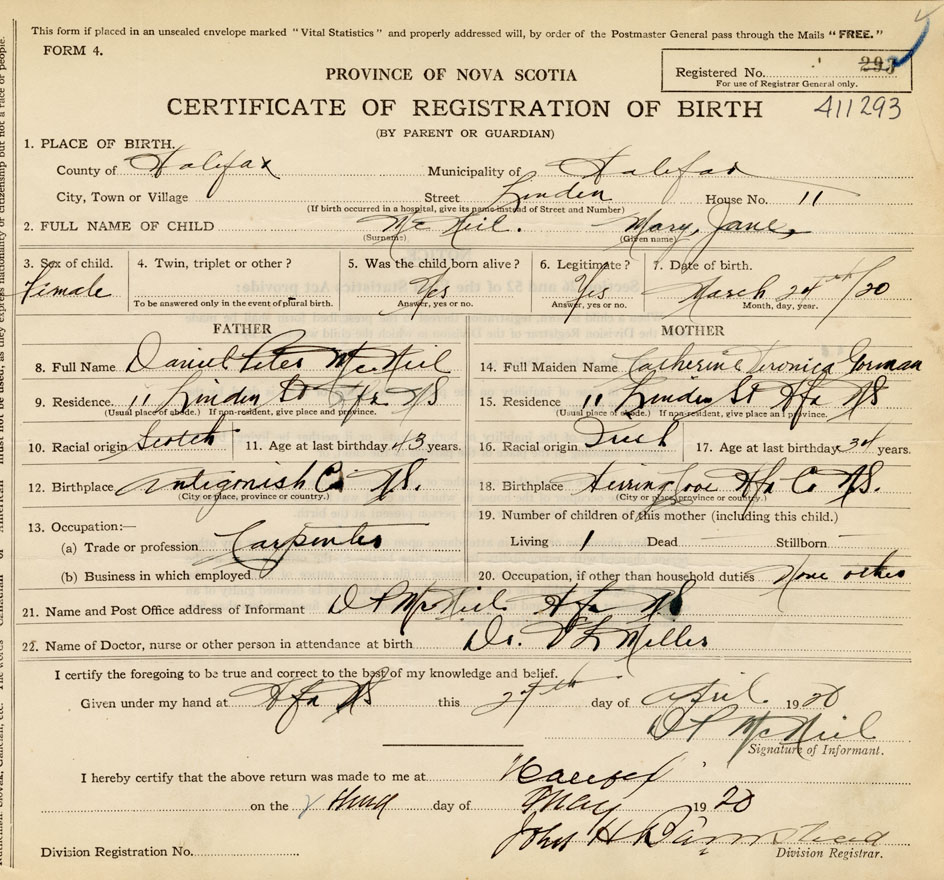 This form if placed in an unsealed envelope marked "Vital Statistics" and properly addressed will, by order of the Postmaster General pass through the Mails "FREE."
FORM 4.
PROVINCE OF NOVA SCOTIA
Registered No. 293
For use of Registrar General only.
CERTIFICATE OF REGISTRATION OF BIRTH 411293
(BY PARENT OR GUARDIAN)
1. PLACE OF BIRTH.
County of Halifax Municipality of Halifax
City, Town or Village Street Linden House No. 11
(If birth occurred in a hospital, give its name instead of Street and Number)
2. FULL NAME OF CHILD McNeil. Mary, Jane,
(Surname) (Given name)
3. Sex of child. 4. Twin, triplet or other? 5. Was the child born alive? 6. Legitimate? 7. Date of birth.
Female Yes Yes March 24th/20
To be answered only in the event of plural birth. Answer, yes or no. Answer, yes or no. Month, day, year.
FATHER MOTHER
8. Full Name Daniel Peter McNeil 14. Full Maiden Name Catherine Veronica Gorman
9. Residence. 11 Linden St Hfx NS 15. Residence 11 Linden St Hfx NS
(Usual place of abode.) If non-resident, give place and province. (Usual place of abode.) If non-resident, give place and province.
10. Racial origin Scotch 11. Age at last birthday 43 years. 16. Racial origin Irish 17. Age at last birthday 34 years.
12. Birthplace Antigonish Co NS. 18. Birthplace Herring Cove Hfx Co NS.
(City or place, province or country.) (City or place, province or country.)
13. Occupation:— 19. Number of children of this mother (including this child.)
(a) Trade or profession Carpenter Living 1 Dead Stillborn
(b) Business in which employed 20. Occupation, if other than household duties None other
21. Name and Post Office address of Informant D P McNeil Hfx NS
22. Name of Doctor, nurse or other person in attendance at birth Dr. Miller
I certify the foregoing to be true and correct to the best of my knowledge and belief.
Given under my hand at Hfx NS this 27th day of April 1920
D P McNeil
Signature of Informant.
I hereby certify that the above return was made to me at Halifax
on the day of May 1920
John H Barnstead
Division Registration No. Division Registrar.